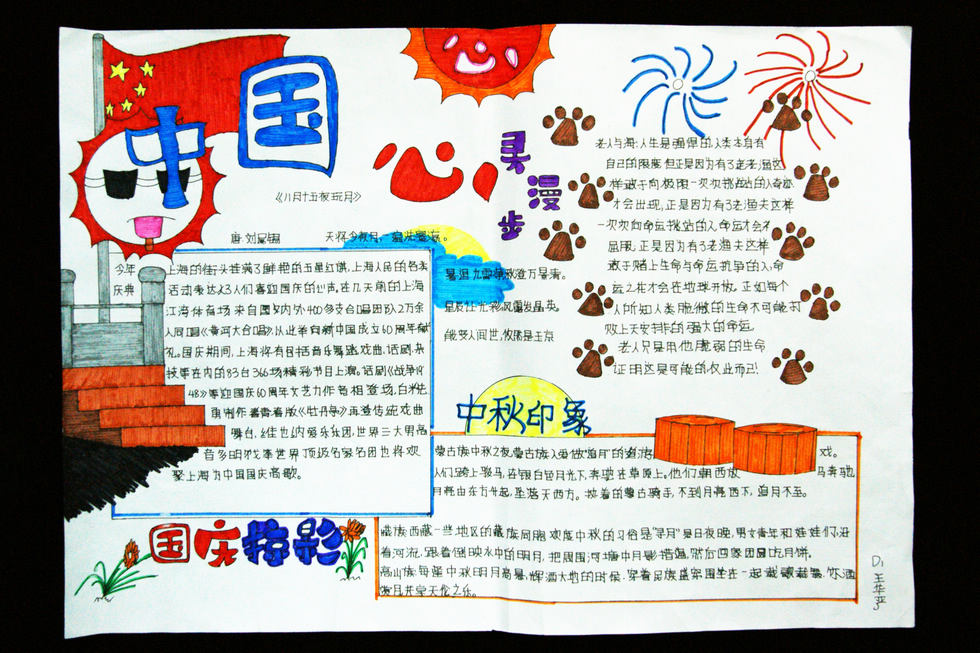 中国心
寻漫步
《八月十五夜玩月》
唐 刘禹锡
天将今夜月,一遍洗寰瀛。
暑退九霄净,秋澄万景清。
星辰让光彩,风露发晶英。
能变人间世,攸然是玉京
老人与海:人生是强悍的,人类本身有
自己的限度但正是因为有了老老渔这
样敢于向极限一次次挑战的人奇迹
才会出现,正是因为有了老渔夫这样
一次次向命运挑战的人命运才会
屈服,正是因为有了老渔夫这样
敢于赌上生命与命运抗争的人,命
运之花才会在地球开放。正如每个
人所知人类脆微的生命不可能
败上天安排的强大的命运。
老人只是用他脆弱的生命
证明这是可能的,仅此而已!
今年
庆典
上海的街头挂满了鲜艳的五星红旗,上海人民的各类
活动表达了人们喜迎国庆的心声,在几天前的上海
江湾体育场来自国内外400多支合唱团队2万余
人同唱《黄河大合唱》从此举向新中国成立60周年献
礼。国庆期间,上海将有包括音乐舞蹈、戏曲、话剧、杂
技等在内的83台366场精彩节目上演。话剧《战争
48》等迎国庆60周年文艺力作竞相登场,白先
勇制作青春版《牡丹亭》再登传统戏曲
舞台,维也纳爱乐乐团,世界三大男高
音多明戈等世界顶级名家名团也将欢
聚上海为中国国庆高歌。
国庆掠影
中秋印象
蒙古族中秋之夜,蒙古族人爱做"追月"的游戏。
人们跨上骏马,在银白色月光下,奔驰在草原上。他们朝西放马奔驰,
月亮由东方升起,坠落天西方。执着的蒙古骑手,不到月亮西下,追月不至。
藏族西藏一些地区的藏族同胞欢度中秋的习俗是"寻月"是日夜晚,男女青年和娃娃们,沿
着河流,跟着倒映水中的明月,把周围河塘中月影措遍,然后回家团圆吃月饼。
高山族每逢中秋明月高悬,辉洒大地的时候,穿着民族盛
赏月共享天伦之乐。